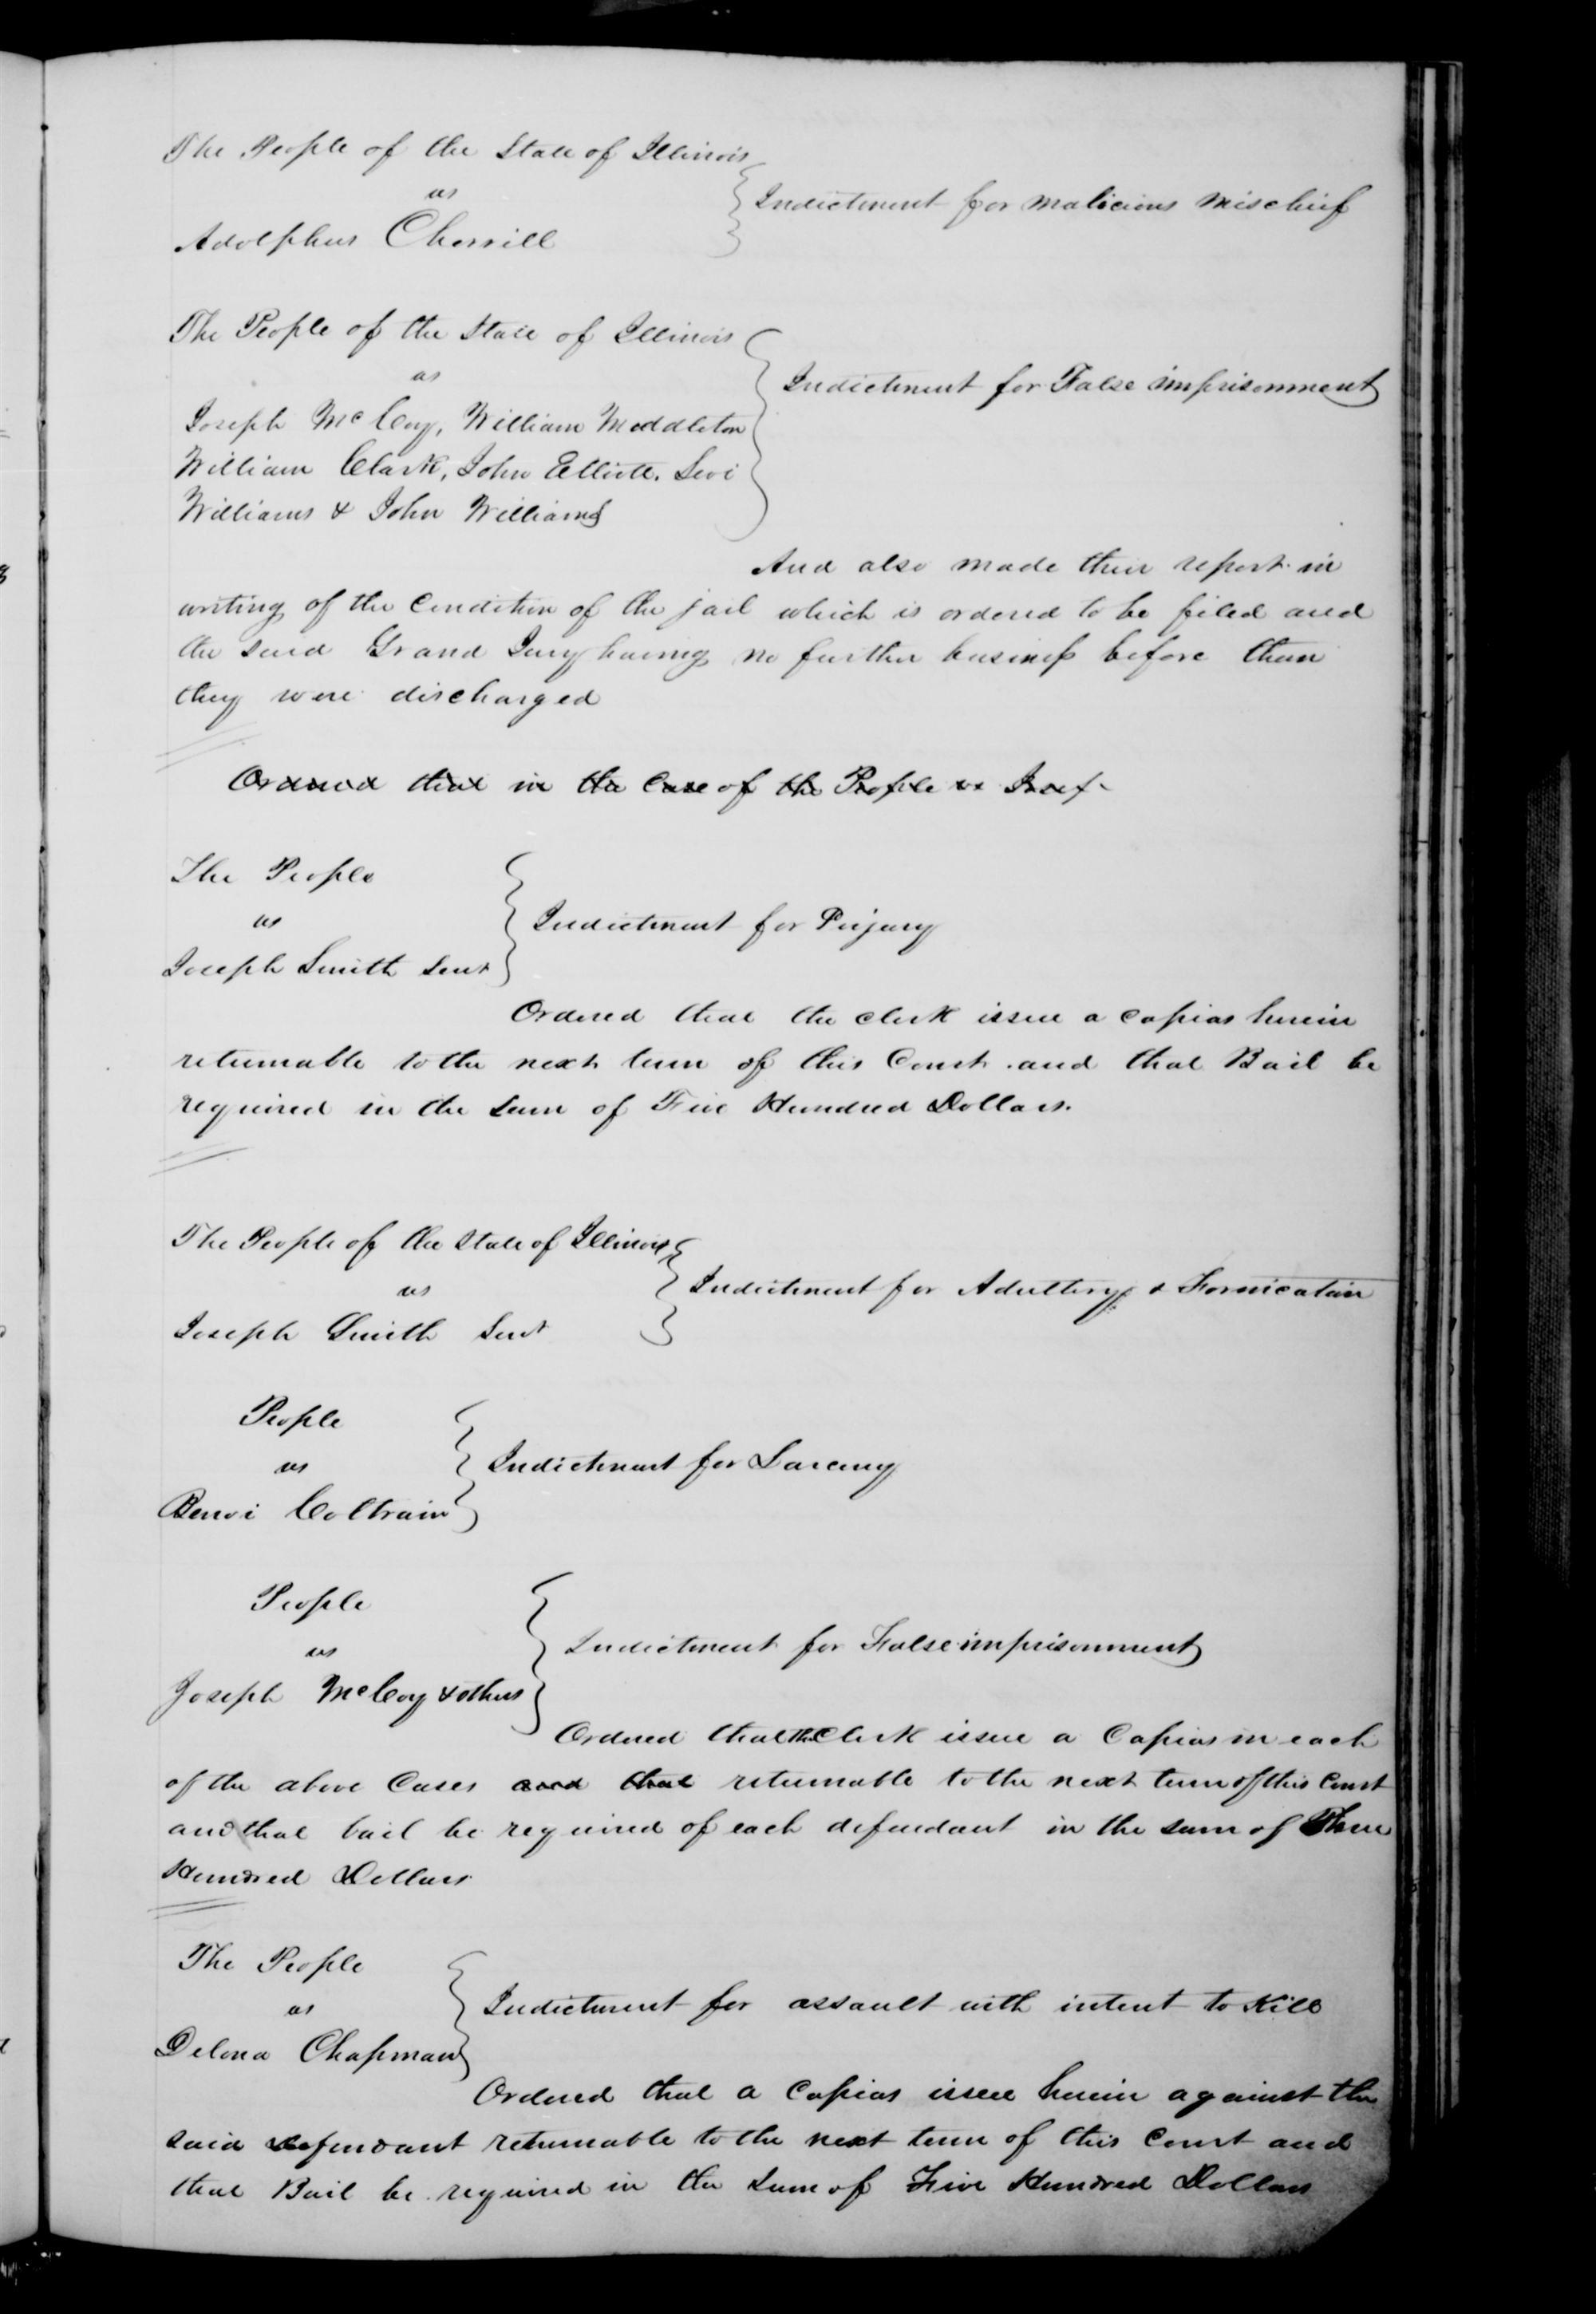 The People of the State of Illinois
vs
Indictment for malicious mischief
Adolphus Cherrill
The People of the State of Illinois
vs
Indictment for False imprisonment
Joseph McCoy, William Middleton
William Clark, John Elliott, Levi
Williams & John Williams
And also made their report in
writing of the Condition of the jail which is ordered to be filed and
the said Grand Jury having no further business before them
they were discharged
Ordered that in the Case of the People vs Josep
The People
vs
Indictment for Perjury
Joseph Smith Senr
Ordered that the clerk issue a capias herein
returnable to the next term of this Court and that Bail be
required in the Sum of Five Hundred Dollars.
The People of the State of Illinois
vs
Indictment for Adultery & Fornication
Joseph Smith Senr
People
vs
Indictment for Larceny
Benoi Coltrain
People
vs
Indictment for False imprisonment
Joseph McCoy & others
Ordered that the Clerk issue a Capias in each
of the above Cases and that returnable to the next term of this Court
and that bail be required of each defendant in the sum of Three
Hundred Dollars
The People
vs
Indictment for assault with intent to Kill
Delona Chapman
Ordered that a Capias issue herein against the
said defendant returnable to the next term of this Court and
that Bail be required in the Sum of Five Hundred Dollars